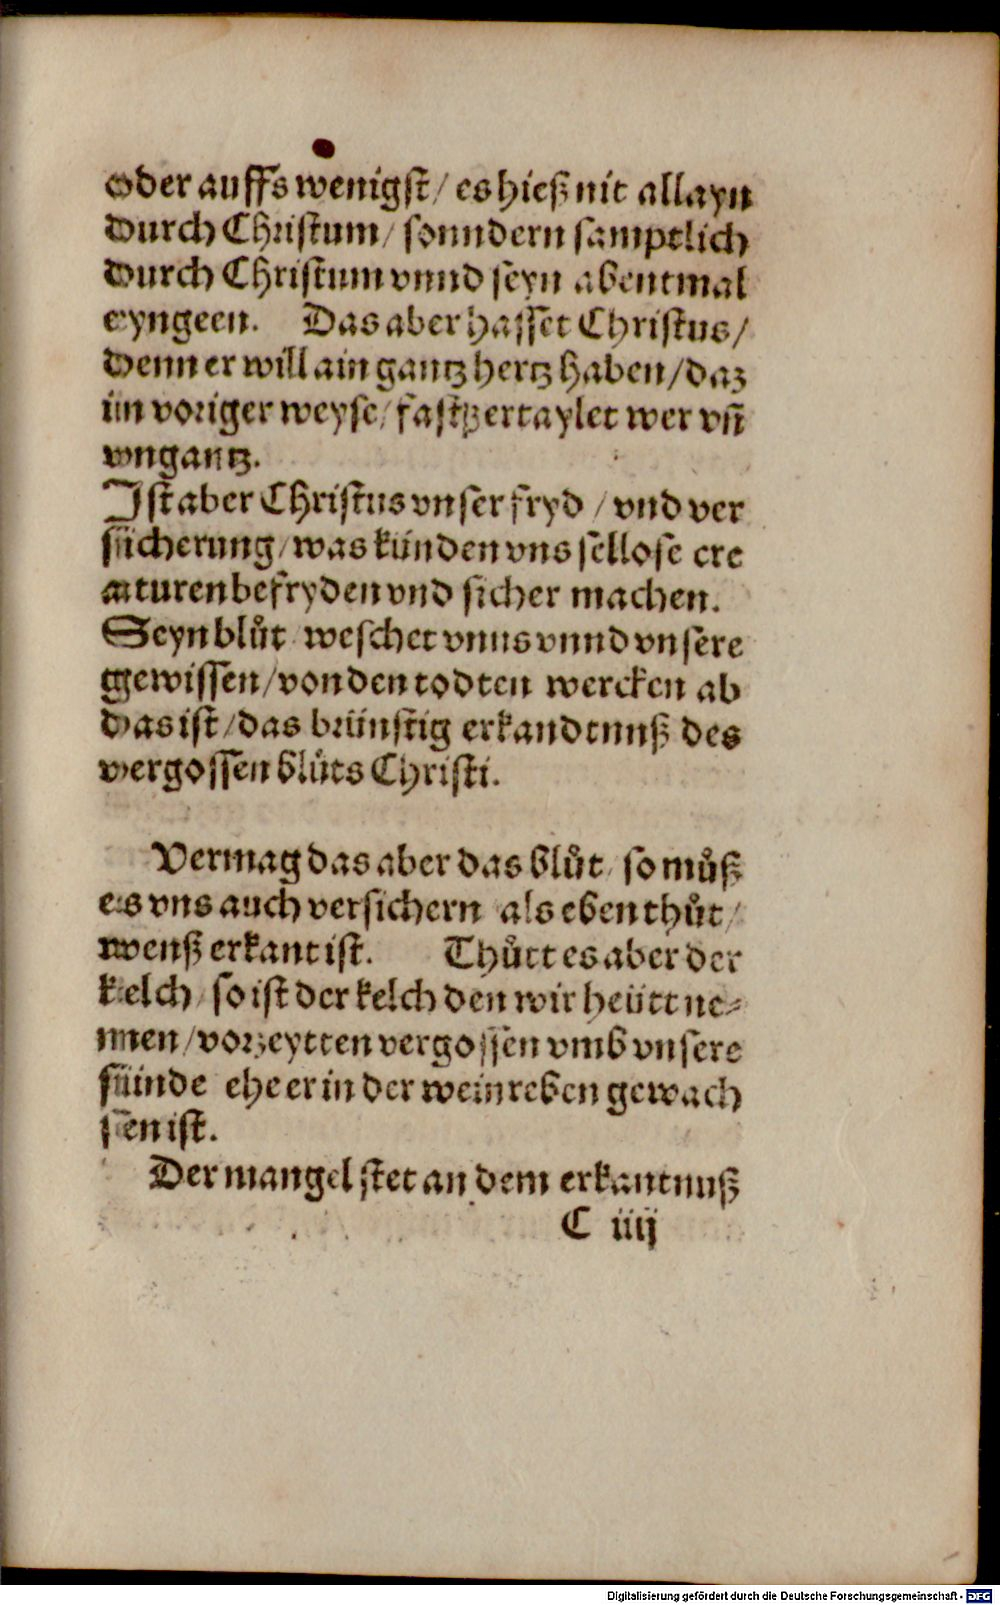 oder auffs wenigst / es hieß nit allayn
durch Christum / sonndern samptlich
durch Christum vnnd seyn abentmal
eyngeen. Das aber hasset Christus /
denn er will ain gantz hertz haben / daz
im voriger weyse / fast zertaylet wer vñ
vngantz.
Ist aber Christus vnser fryd / vnd ver
sücherung / was künden vns sellose cre
aturen befryden vnd sicher machen.
Seyn blůt weschet vnns vnnd vnsere
gewissen / von den todten wercken ab
das ist / das brünstig erkandtnuß des
vergossen blůts Christi.
Vermag das aber das blůt / so můß
es vns auch versichern als eben thůt /
wenß erkant ist. Thůtt es aber der
kelch / so ist der kelch den wir heütt ne⸗
nnen / vorzeytten vergossen vmb vnsere
sünde ehe er in der weinreben gewach
sen ist.
Der mangel stet an dem erkantnuß
C iiij
Digitalisierung gefördert durch die Deutsche Forschungsgemeinschaft - DFG